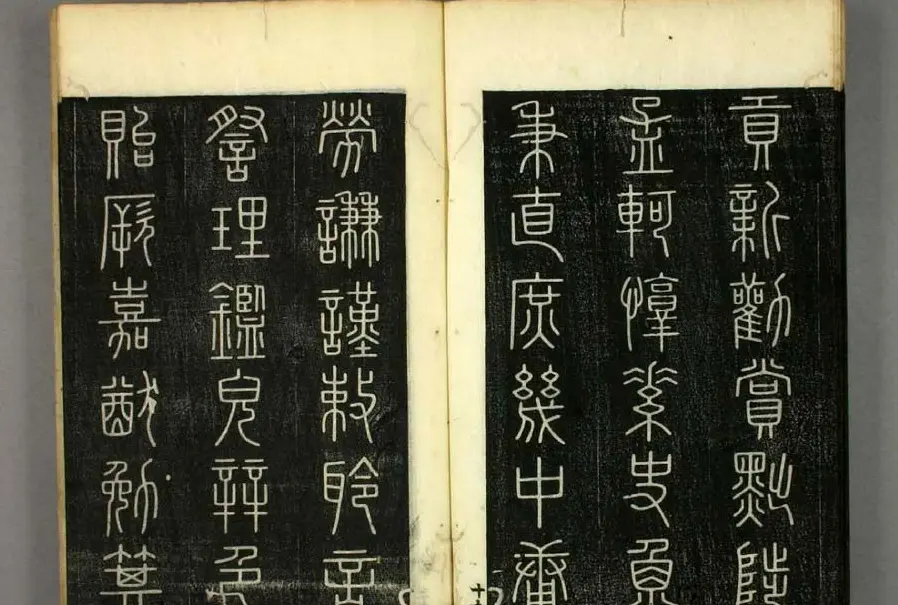 貢新勸賞黜陟
孟軻惇素史魚
秉直庶幾中庸
勞謙謹敕聆音
詧理鑑皃辨色
貽厥嘉猷勉其